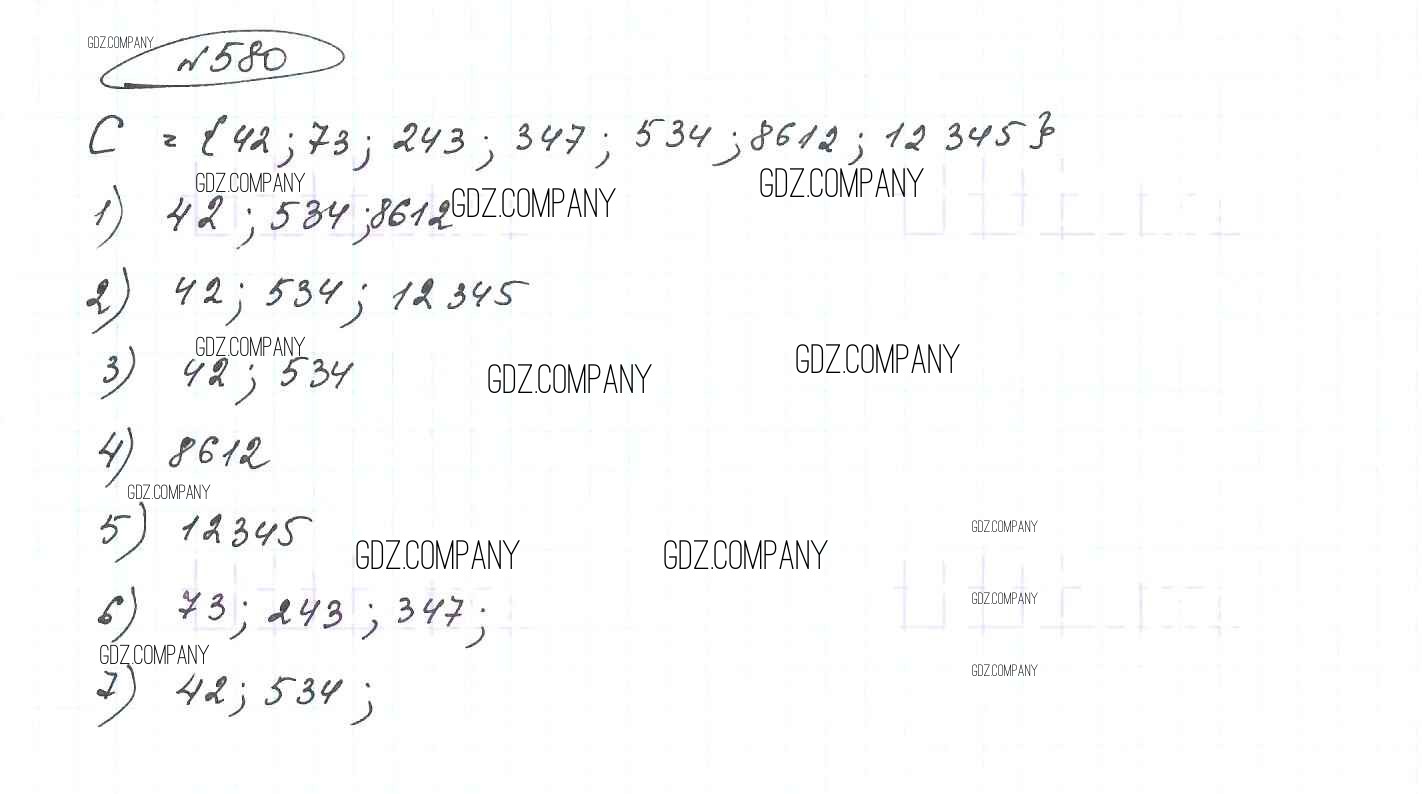 GDZ.COMPANY
№580
C = {42; 73; 243; 347; 534; 8612; 12 345}
GDZ.COMPANY GDZ.COMPANY GDZ.COMPANY
1) 42; 534; 8612
2) 42; 534; 12 345
GDZ.COMPANY GDZ.COMPANY GDZ.COMPANY
3) 42; 534
4) 8612
GDZ.COMPANY
5) 12345
GDZ.COMPANY
GDZ.COMPANY GDZ.COMPANY
6) 73; 243; 347;
GDZ.COMPANY
GDZ.COMPANY
GDZ.COMPANY
7) 42; 534;